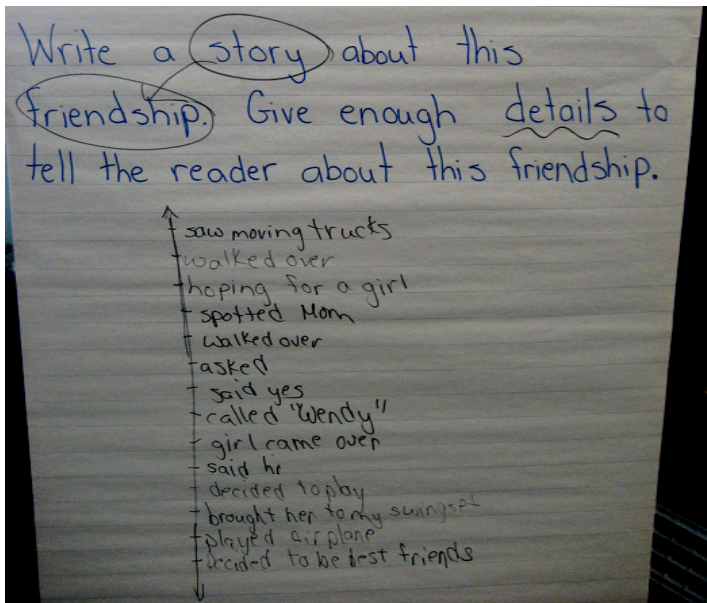 Write a story about this
friendship. Give enough details to
tell the reader about this friendship.
saw moving trucks
walked over
hoping for a girl
spotted Mom
walked over
asked
said yes
called "Wendy"
girl came over
said hi
decided to play
brought her to my swingset
played airplane
decided to be best friends